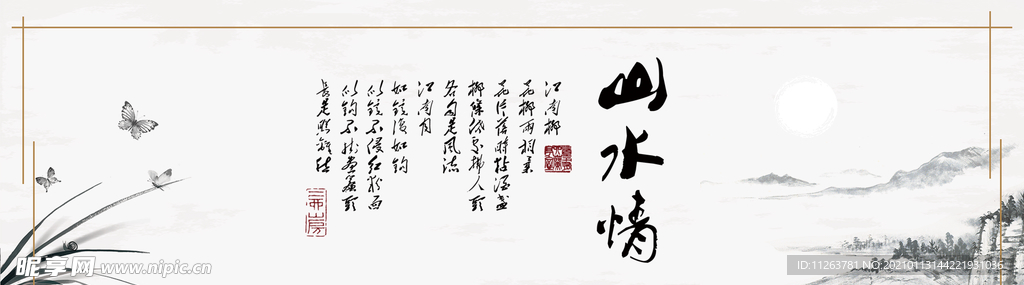 山水情
江南柳
花柳两相柔
花片落时黏酒盏
柳条低处拂人头
各自是风流
江南月
如镜复如钩
似镜不侵红粉面
似钩不挂画帘头
长是照离愁
昵享网 www.nipic.cn
ID:11263781 NO:20210113144221931036